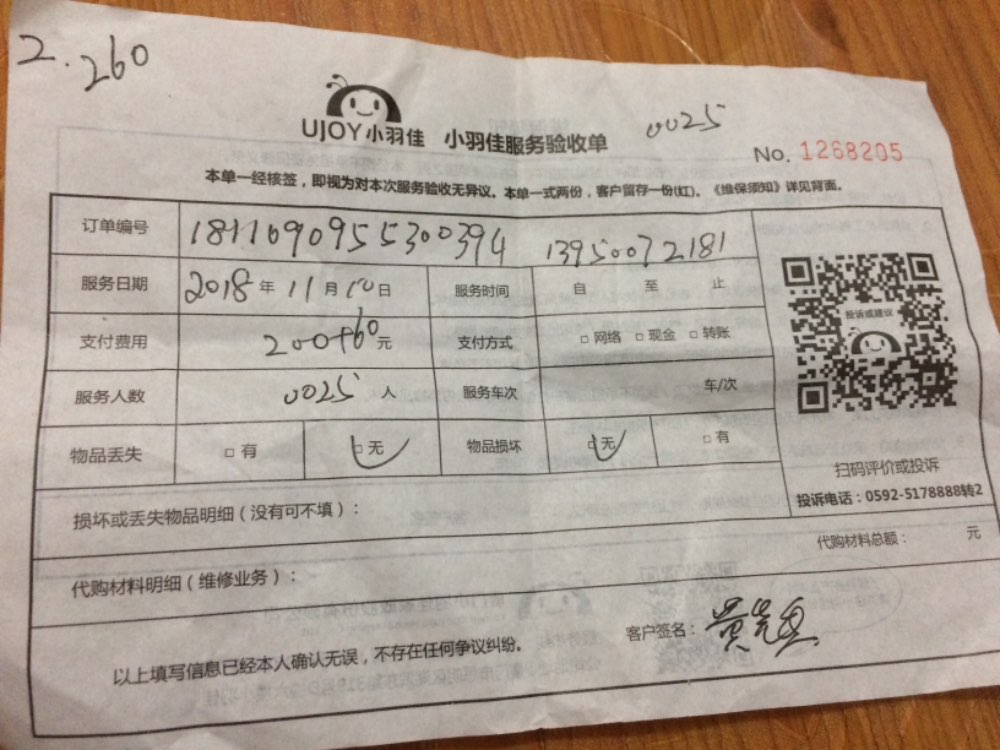 2.260
UJOY小羽佳 小羽佳服务验收单 0025
No. 1268205
本单一经核签，即视为对本次服务验收无异议。本单一式两份，客户留存一份(红)。《维保须知》详见背面。
订单编号 1811090955300394 13950072181
服务日期 2018年11月10日 服务时间 自 至 止
支付费用 200+60元 支付方式 □网络 □现金 □转账
服务人数 0025 人 服务车次 车/次
物品丢失 □有 □无 物品损坏 □无 □有
投诉或建议
扫码评价或投诉
投诉电话：0592-5178888转2
损坏或丢失物品明细（没有可不填）：
代购材料总额： 元
代购材料明细（维修业务）：
客户签名：
以上填写信息已经本人确认无误，不存在任何争议纠纷。